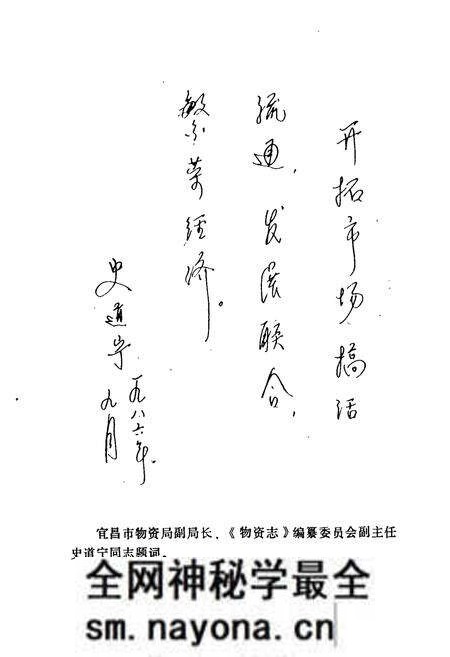 开拓市场搞活
流通，发展联合，
繁荣经济。
史道宁
一九八六年
九月
宜昌市物资局副局长、《物资志》编纂委员会副主任
史道宁同志题词。
全网神秘学最全
sm.nayona.cn